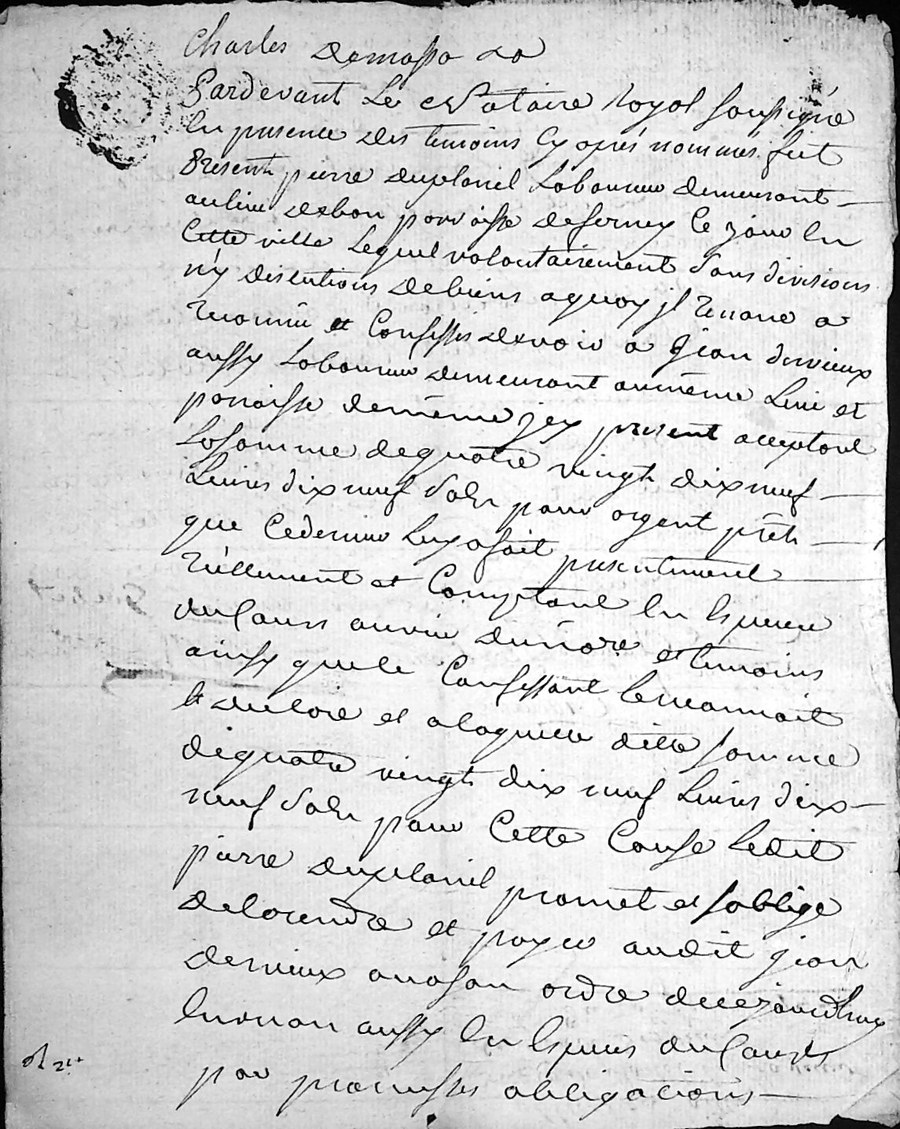 Charles Demasso
Pardevant Le Notaire Royal soussigné
En presence des temoins cy aprés nommés fut
Present pierre duplanil Laboureur demeurant
au lieu parroisse de ferney ce jour En
Cette ville Lequel volontairement sans divisions
n'y discutions de biens a quoy jl renonce a
reconnu et Confessé devoir a jean dervieux
aussy Laboureur demeurant au même Lieu et
parroisse de même jcy present acceptant
La somme de quatre vingt dix neuf
Livres dix neuf sols pour argent prêté
que Ce dernier Luy a fait presentement
réellement et Comptant En Especes
du Cours au vue du nore et temoins
ainsy que le Confessant Le reconnait
et declare et a laquelle ditte somme
de quatre vingt dix neuf Livres dix
neuf sols pour Cette Cause Ledit
pierre duplanil promet et s'oblige
de Le rendre et payer audit jean
dervieux ou a son ordre
En un an aussy En Especes du Cours
par promesses obligations